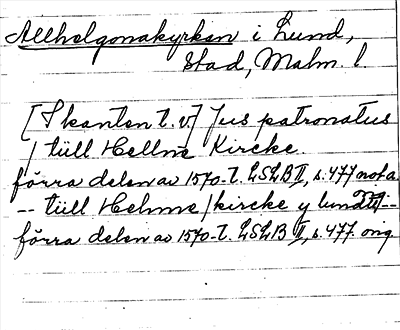 Allhelgonakyrkan i Lund,
stad, Malm. l.
[I kanten t. v.] Jus patronatus
/ tiill Hellne Kircke.
förra delen av 1570-t. LSLB II, s. 477 nota
-- tiill Helnne/kircke y lund
förra delen av 1570-t. LSLB II, s. 477. orig.